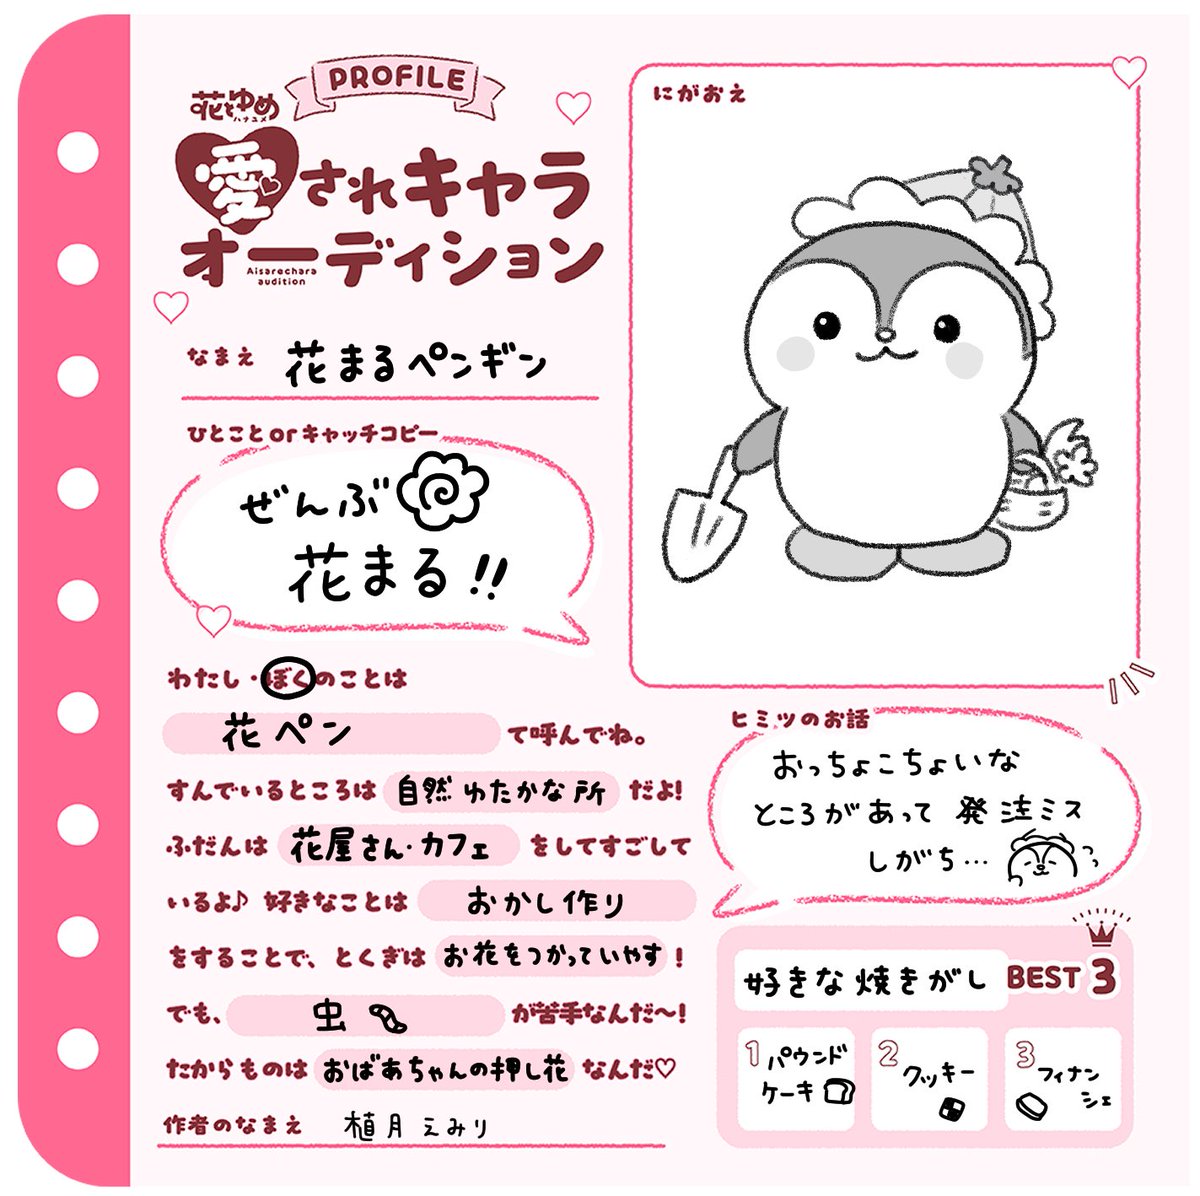 PROFILE
花とゆめ
ハナユメ
愛されキャラ
オーディション
Aisarechara
audition
なまえ 花まるペンギン
ひとことorキャッチコピー
ぜんぶ
花まる!!
わたし・ぼくのことは
花ペン て呼んでね。
すんでいるところは 自然ゆたかな所 だよ!
ふだんは 花屋さん・カフェ をしてすごして
いるよ♪ 好きなことは おかし作り
をすることで、とくぎは お花をつかっていやす!
でも、 虫 が苦手なんだ〜!
たからものは おばあちゃんの押し花 なんだ♡
作者のなまえ 植月えみり
にがおえ
ヒミツのお話
おっちょこちょいな
ところがあって 発注ミス
しがち…
好きな焼きがし BEST 3
1 パウンド
ケーキ
2 クッキー
3 フィナン
シェ